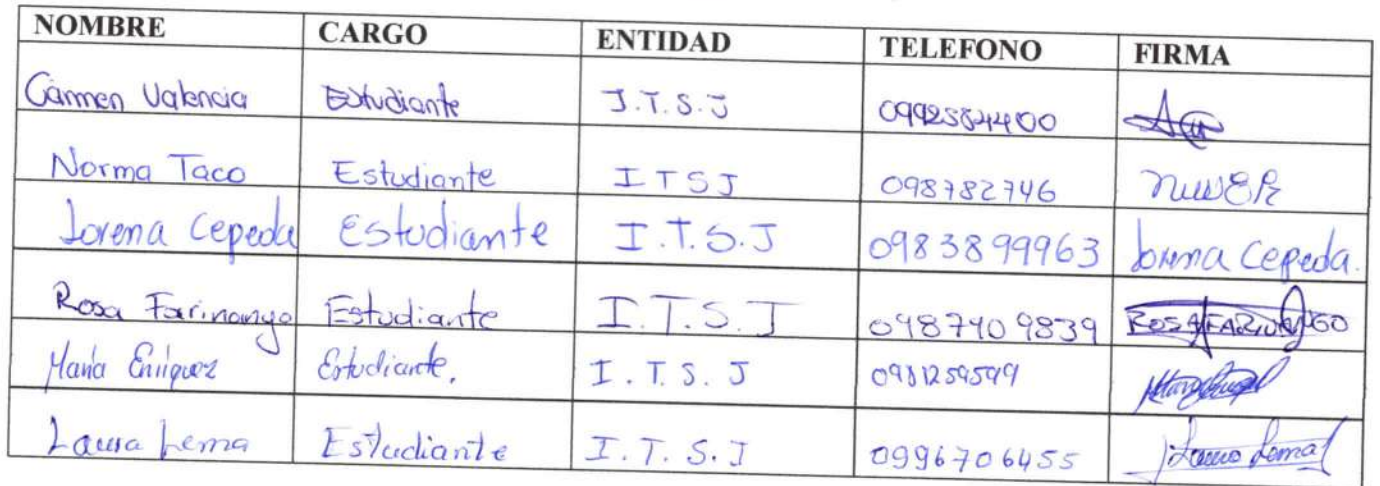 NOMBRE CARGO ENTIDAD TELEFONO FIRMA
Carmen Valencia Estudiante I.T.S.J 0992584400
Norma Taco Estudiante I T S J 098782746
Lorena Cepeda Estudiante I.T.S.J 0983899963 Lorena Cepeda.
Rosa Farinango Estudiante I.T.S.J 0987409839 ROSA FARINANGO
María Enríquez Estudiante. I.T.S.J 0981259599
Laura Lema Estudiante I.T.S.J 0996706455 Laura Lema